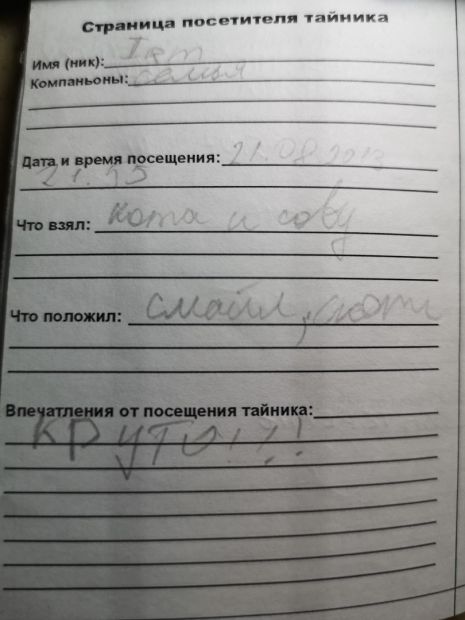 Страница посетителя тайника
Имя (ник): Igm
Компаньоны: семья
Дата и время посещения: 21.08.2013
21.55
Что взял: кота и сову
Что положил: смайл,
Впечатления от посещения тайника:
КРУТО!!!